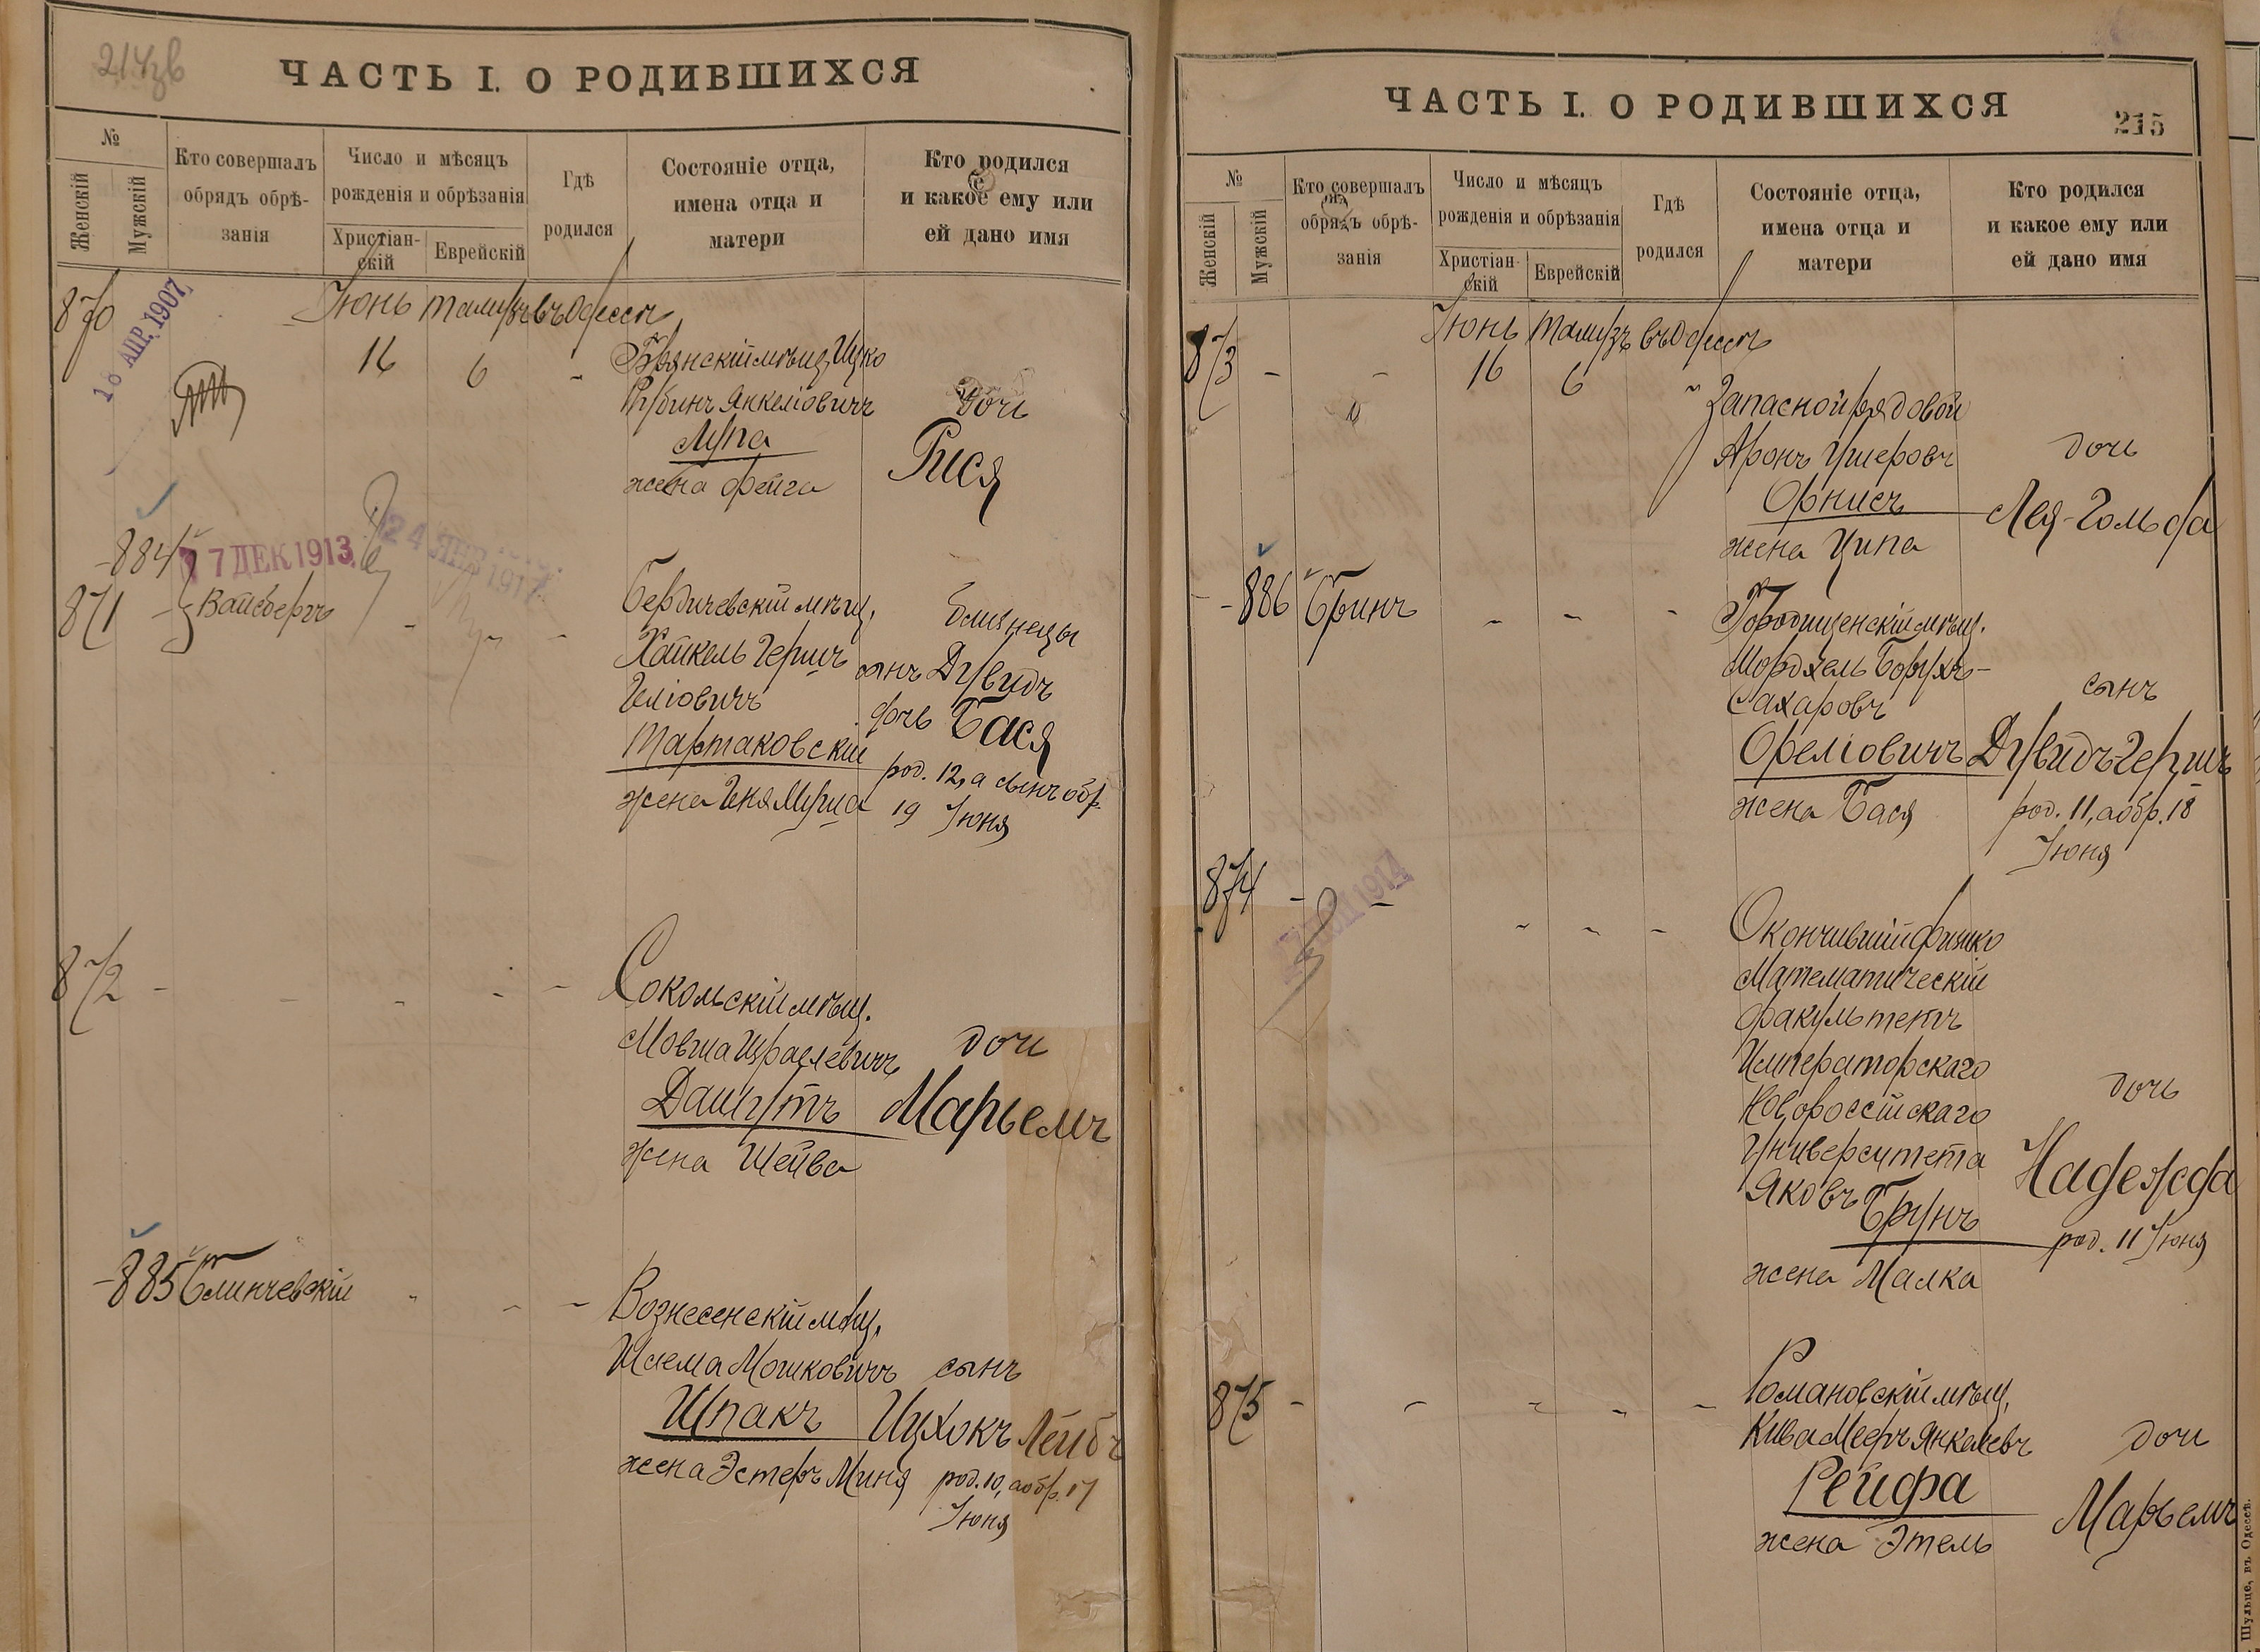 214зв
ЧАСТЬ I. О РОДИВШИХСЯ
№
Женскій
Мужскій
Кто совершалъ
обрядъ обрѣ-
занія
Число и мѣсяцъ
рожденія и обрѣзанія
Христіан-
скій
Еврейскій
Гдѣ
родился
Состояніе отца,
имена отца и
матери
Кто родился
и какое ему или
ей дано имя
870
16 АПР. 1907
Іюнь Тамузъ въ Одессѣ
16 6 - мѣщ. Ицко
Рубинъ Янкеліовичъ дочь
Лупа
Рися
жена Фейга
884
17 ДЕК 1913.
24 ЯНВ 1917
871 - Вайсбергъ - -
Бердичевскій мѣщ.
близнецы
Хайкель Гершъ сынъ Дувидъ
Геліовичъ дочь Бася
Тартаковскій род. 12, а сынъ обр.
жена Геня Муша 19 Іюня
872 - - - - - Сокольскій мѣщ.
Мовша Израелевичъ дочь
Дашутъ Марьемъ
жена Шейва
- 885 Блинчевскій - - - Вознесенскій мѣщ.
Шлема Мошковичъ сынъ
Шпакъ Ицхокъ Лейбъ
жена Эстеръ Миня род. 10, а обр. 17
Іюня
ЧАСТЬ I. О РОДИВШИХСЯ
215
№
Женскій
Мужскій
Кто совершалъ
обрядъ обрѣ-
занія
Число и мѣсяцъ
рожденія и обрѣзанія
Христіан-
скій
Еврейскій
Гдѣ
родился
Состояніе отца,
имена отца и
матери
Кто родился
и какое ему или
ей дано имя
873 - - Іюнь Тамузъ въ Одессѣ
16 6 - Запасной рядовой
Аронъ Ушеровъ дочь
Орнисъ Лея-Гольда
жена Ципа
- 886 Бринъ - - - Городищенскій мѣщ.
Мордхель Борухъ-
Сахаровъ сынъ
Ореліовичъ Дувидъ Гершъ
жена Бася род. 11, а обр. 18
Іюня
1914
874 - - - - - Окончившій физико
Математическій
факультетъ
Императорскаго
Новороссійскаго дочь
Университета Надежда
Яковъ Брунъ
род. 11 Іюня
жена Малка
875 - - - - - Романовскій мѣщ.
Кива Мееръ Янкелевъ дочь
Рейфа
Марьемъ
жена Этель
Шульце, въ Одессѣ.